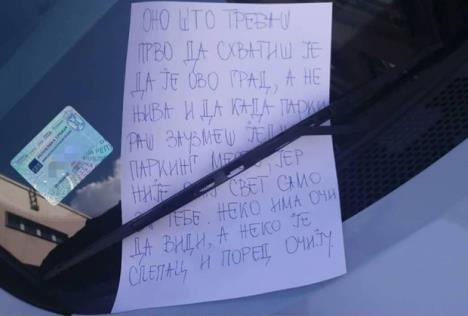 ОНО ШТО ТРЕБАШ
ПРВО ДА СХВАТИШ ЈЕ
ДА ЈЕ ОВО ГРАД, А НЕ
ЊИВА И ДА КАДА ПАРКИ
РАШ ЗАУЗМЕШ
ПАРКИНГ МЕСТО, ЈЕР
НИЈЕ СВЕТ САМО
ЗА ТЕБЕ. НЕКО ИМА ОЧИ
ДА ВИДИ, А НЕКО ЈЕ
СЛЕПАЦ И ПОРЕД ОЧИЈУ.